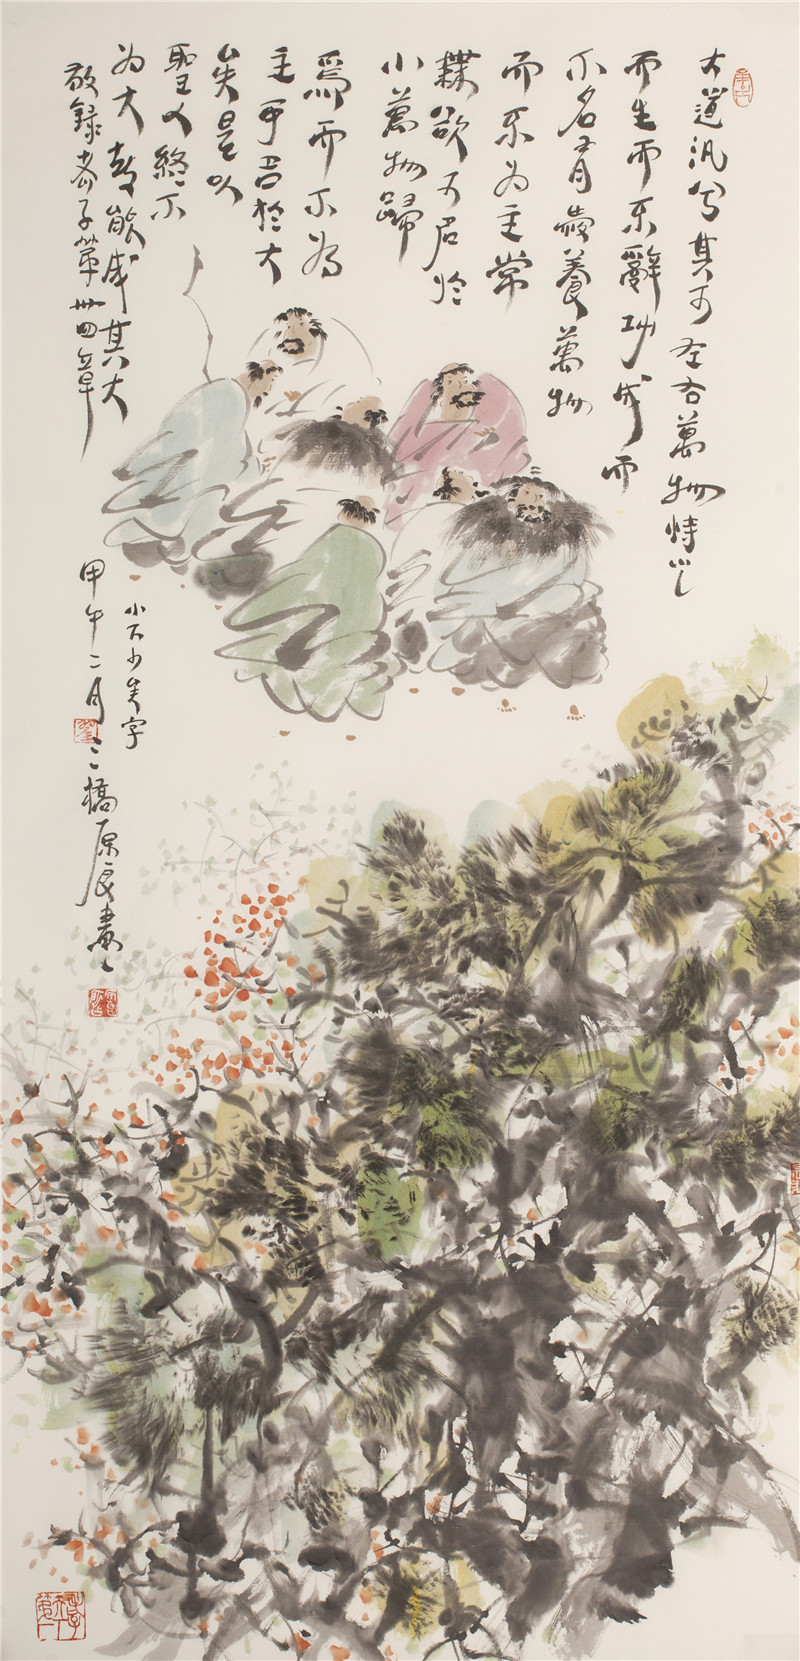 大道汎兮其可左右萬物恃之
而生而不辭功成而
不名有養萬物
而不為主常
無欲可名於
小萬物歸
焉而不為
主可名於大
矣是以
聖人終不
為大故能成其大
敬錄老子第卅四章
小下少矣字
甲午二月三橋原良畫